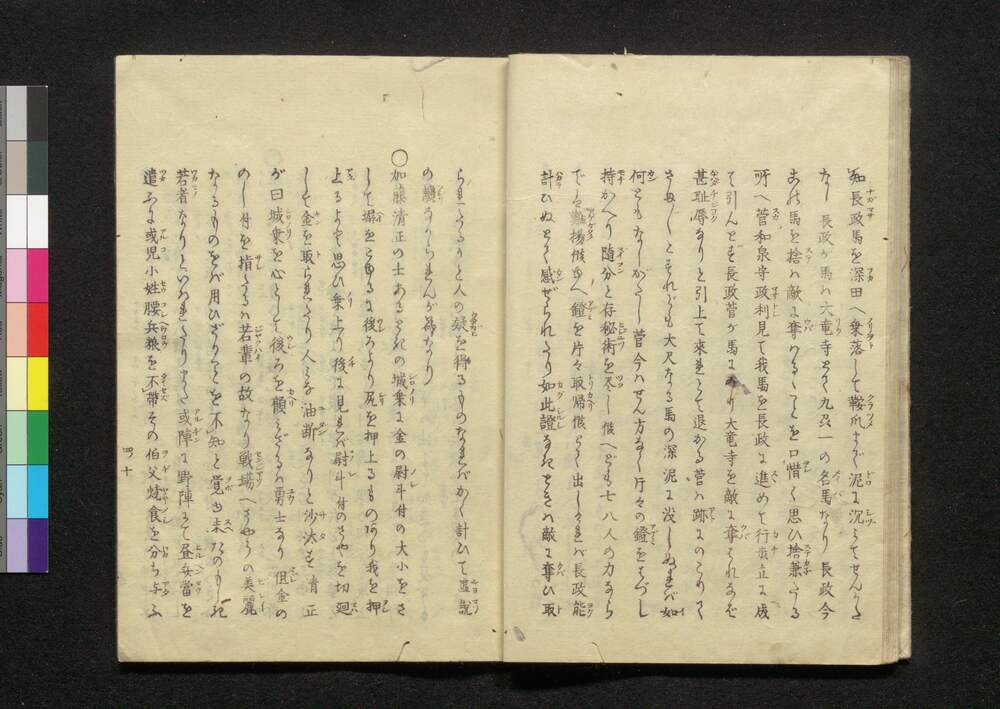 知長政馬を深田へ乗落して鞍爪まで泥に沈ミてせんかた
なし長政が馬ハ大竜寺とて九品一の名馬なり長政今
あの馬を捨ハ敵に奪わるゝことを口惜く思ひ捨兼たる
所へ菅和泉守政利見て我馬を長政に進めて行歩立に成
て引んとす長政菅が馬にのり大竜寺を敵に奪ハれなば
甚恥辱なりと引上て来れとて退かる菅ハ跡にのこりて
さぬしこそあれども大尺なる馬の深泥に没しぬれば如
何ともなしがたし菅今ハせん方なく片々の鐙をはづし
持かへり随分と存秘術を尽し候へども七八人の力なら
でハ難揚候ゆへ鐙を片々取帰候とて出しければ長政能
計ひぬとて感ぜられたり如此證なきときハ敵に奪ひ取
られたるかと人の疑を得るものなればかく計ひて虚説
の難なからしめんが為なり
○加藤清正の士あるとき城乗に金の尉斗付の大小をさ
して塀をこゆるに後ろより尻を押上るものあり我を押
上るよと思ひ乗上り後に見れば尉斗付のさやを切廻
して金を取られたり人ミな油断なりと沙汰す清正
が曰城乗を心として後ろを顧ミざるハ勇士なり但金の
のし付を指たるハ若輩の故なり戦場へさやうの美麗
なるものをば用ひざることを不知と覚ゆ末たのもしき
若者なりといハれたりまた或陣に野陣にて昼兵當を
遣ふに或児小姓腰兵粮を不帯その伯父焼食を分ち与ふ
四十